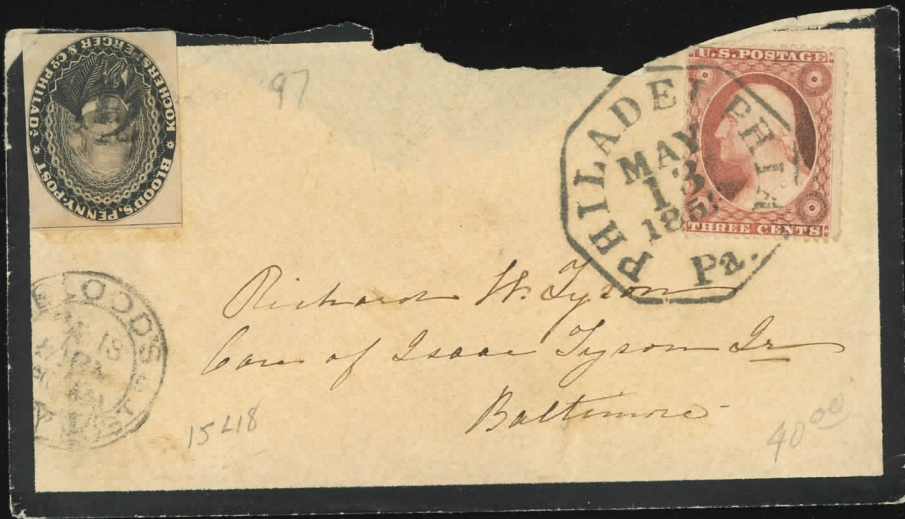 BLOOD'S, PENNY-POST
KOCHERSPERGER & CO. PHILADA.
97
U.S. POSTAGE
THREE CENTS
PHILADELPHIA
MAY
13
Pa.
BLOOD'S
Richard W. Tyson
Care of Isaac Tyson Jr
Baltimore
15L18
40 00